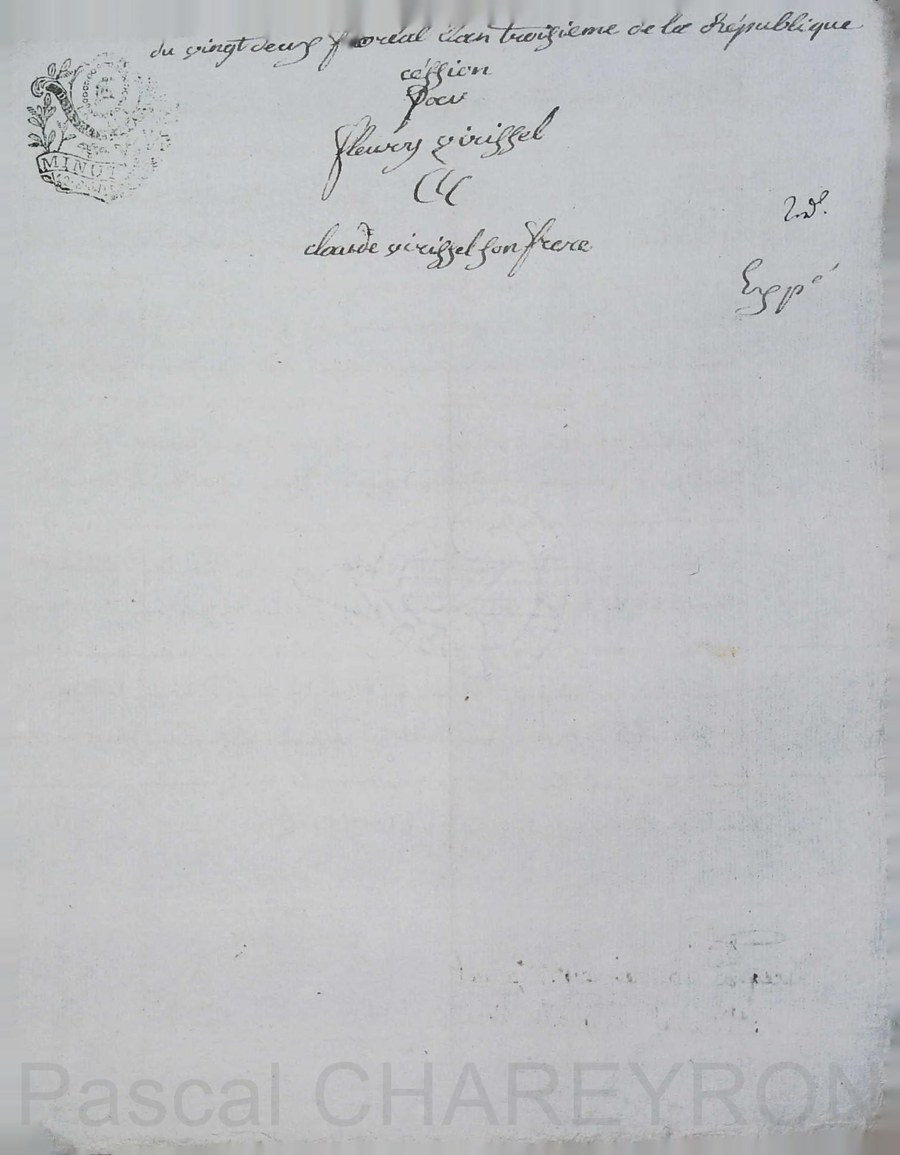 du vingt deux floréal l'an troisieme de la République
céssion
Pour
fleury virissel
C
claude virissel son frere
2.d.
Exp.é
MINUT
Pascal CHAREYRON